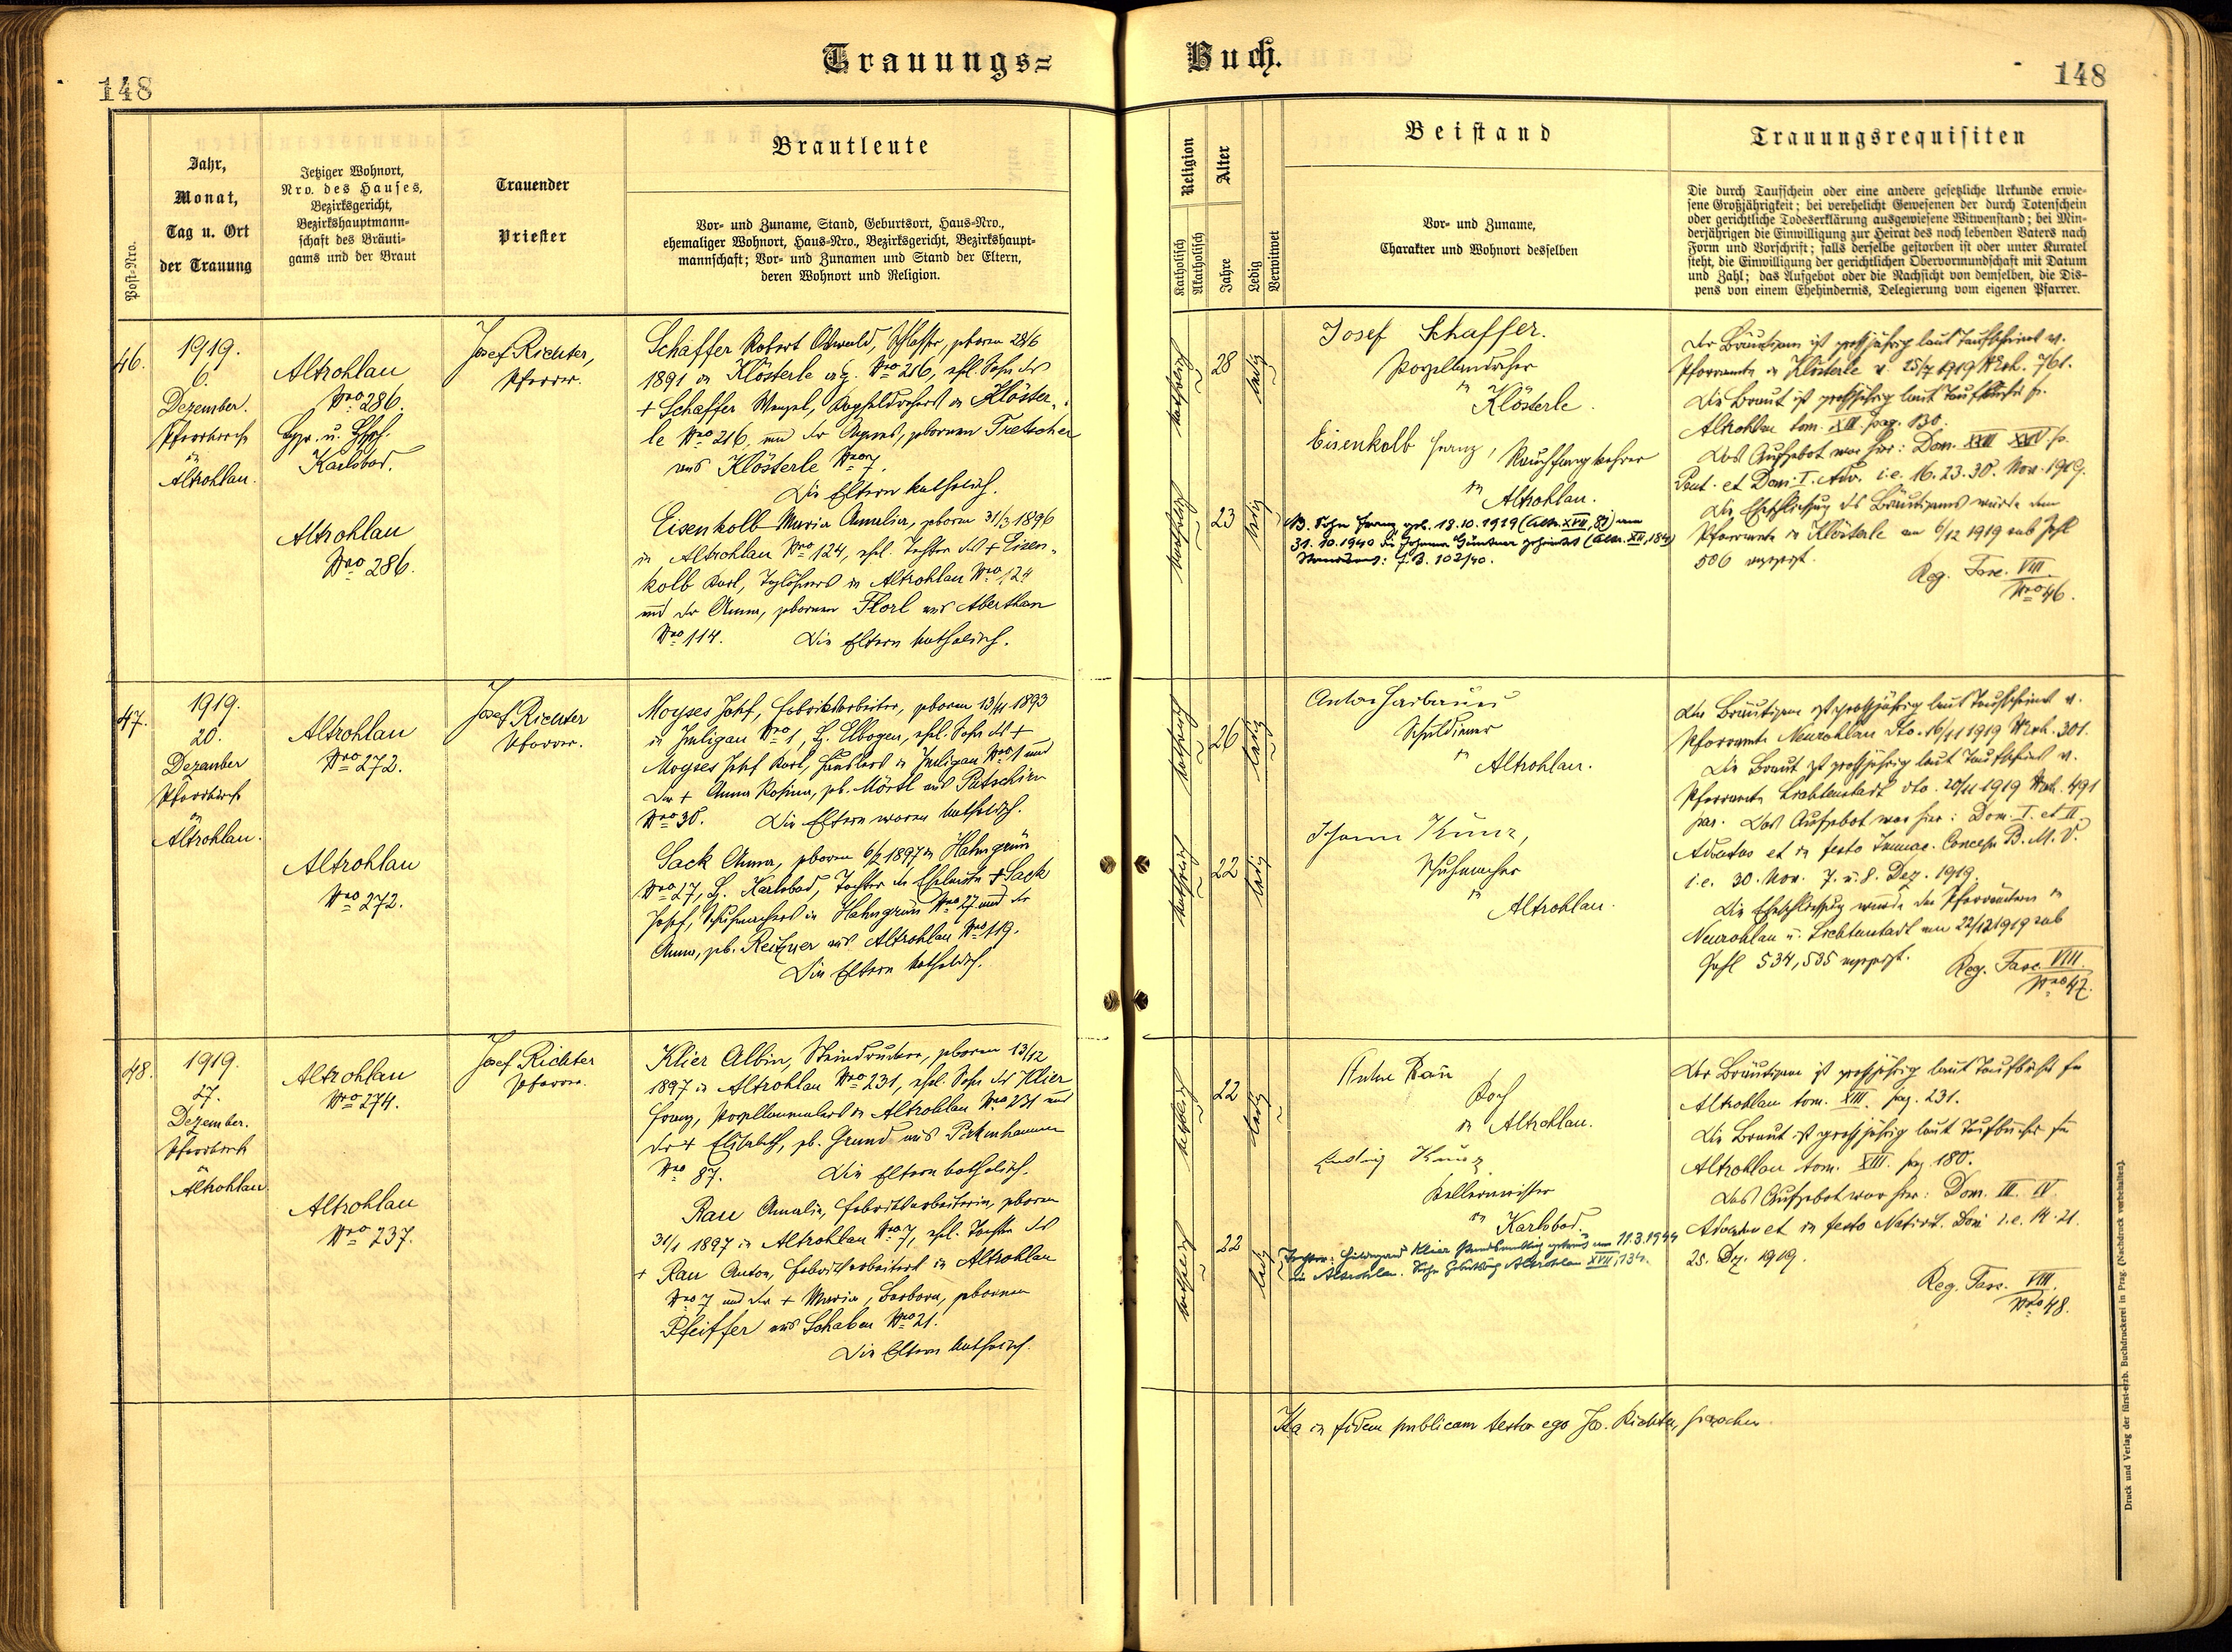 Trauungs=
Buch.
148
148
Post-Nro.
Jahr,
Monat,
Tag u. Ort
der Trauung
Jetziger Wohnort,
Nro. des Hauses,
Bezirksgericht,
Bezirkshauptmann-
schaft des Bräuti-
gams und der Braut
Trauender
Priester
Brautleute
Vor- und Zuname, Stand, Geburtsort, Haus-Nro.,
ehemaliger Wohnort, Haus-Nro., Bezirksgericht, Bezirkshaupt-
mannschaft; Vor- und Zunamen und Stand der Eltern,
deren Wohnort und Religion.
Religion
Katholisch
Akatholisch
Alter
Jahre
Ledig
Verwitwet
Beistand
Vor- und Zuname,
Charakter und Wohnort desselben
Trauungsrequisiten
Die durch Taufschein oder eine andere gesetzliche Urkunde erwie-
sene Großjährigkeit; bei verehelicht Gewesenen der durch Totenschein
oder gerichtliche Todeserklärung ausgewiesene Witwenstand; bei Min-
derjährigen die Einwilligung zur Heirat des noch lebenden Vaters nach
Form und Vorschrift; falls derselbe gestorben ist oder unter Kuratel
steht, die Einwilligung der gerichtlichen Obervormundschaft mit Datum
und Zahl; das Aufgebot oder die Nachsicht von demselben, die Dis-
pens von einem Ehehindernis, Delegierung vom eigenen Pfarrer.
46.
1919.
6.
Dezember.
Pfarrkirche
in
Altrohlau.
Altrohlau
Nro 286.
Karlsbad.
Altrohlau
Nro 286.
Josef Richter,
Pfarrer.
Schaffer Robert Oswald, Schlosser, geboren 28/6
1891 in Klösterle Nro 216, ehl. Sohn des
+ Schaffer Wenzel, in Klöster-
le Nro 216 und der Agnes, geborenen Tretscher
aus Klösterle Nro 7.
Die Eltern katholisch.
Eisenkolb Maria Amalia, geboren 31/3 1896
in Altrohlau Nro 124, ehl. Tochter des + Eisen-
kolb Karl, Taglöhners in Altrohlau Nro 124
und der Anna, geborenen Florl aus Aberthan
Nro 114. Die Eltern katholisch.
katholisch
28
ledig
katholisch
23
ledig
Josef Schaffer.
Porzellandreher
in
Klösterle.
Eisenkolb Franz, Rauchfangkehrer
in
Altrohlau.
NB. Sohn Franz geb. 18.10.1919 (Altr. XVII, 81) am
31.10.1940 die Johanna Güntner geheiratet (Altr. XII, 184)
Standesamt: F.B. 102/40.
Der Bräutigam ist großjährig laut Taufscheines v.
Pfarramte in Klösterle v. 25/7 1919 Nr exh. 761.
Die Braut ist großjährig laut Taufbuches fr.
Altrohlau tom. XIII. pag. 130.
Das Aufgebot war hier: Dom. XXIII XXIV p.
Pent. et Dom. I. Adv. i.e. 16. 23. 30. Nov. 1919.
Die Eheschließung des Bräutigams wurde dem
Pfarramte in Klösterle am 6/12 1919 sub Zahl
506 angezeigt.
Reg. Fasc. VIII
Nro 46.
47.
1919.
20.
Dezember
Pfarrkirche
in
Altrohlau.
Altrohlau
Nro 272.
Altrohlau
Nro 272.
Josef Richter
Pfarrer.
Moyses Josef, Fabriksarbeiter, geboren 13/11 1893
in Imligau Nro 1, B. Elbogen, ehl. Sohn des +
Moyses Josef Karl, Häuslers in Imligau Nro 1 und
der + Anna Rosina, geb. Mörtl aus Putschirn
Nro 30. Die Eltern waren katholisch.
Sack Anna, geboren 6/2 1897 in Hahngrün
Nro 27, B. Karlsbad, Tochter der Eheleute + Sack
Josef, Schuhmachers in Hahngrün Nro 27 und der
Anna, geb. Reitzner aus Altrohlau Nro 119.
Die Eltern katholisch.
katholisch
26
ledig
katholisch
22
ledig
Anton Harbauer
Schuldiener
in
Altrohlau.
Johann Kunz,
Schuhmacher
in
Altrohlau.
Der Bräutigam ist großjährig laut Taufscheines v.
Pfarramte Neurohlau dto. 16/11 1919 Nr exh. 301.
Die Braut ist großjährig laut Taufscheines v.
Pfarramte Lichtenstadt dto. 20/11 1919 Nr exh. 491
par. Das Aufgebot war hier: Dom. I. et II.
Adventus et in festo Immac. Concep. B. M. V.
i.e. 30. Nov. 7. u. 8. Dez. 1919.
Die Eheschließung wurde den Pfarrämtern in
Neurohlau u. Lichtenstadt am 22/12 1919 sub
Zahl 534, 535 angezeigt.
Reg. Fasc. VIII.
Nro 47.
48.
1919.
27.
Dezember.
Pfarrkirche
in
Altrohlau.
Altrohlau
Nro 274.
Altrohlau
Nro 237.
Josef Richter
Pfarrer.
Klier Albin, Steindrucker, geboren 13/12
1897 in Altrohlau Nro 231, ehl. Sohn des Klier
Franz, Porzellanmalers in Altrohlau Nro 231 und
der + Elisabeth, geb. Grund aus Pirkenhammer
Nro 87. Die Eltern katholisch.
Rau Amalia, Fabriksarbeiterin, geboren
31/1 1897 in Altrohlau Nro 7, ehl. Tochter des
+ Rau Anton, Fabriksarbeiters in Altrohlau
Nro 7 und der + Maria, Barbara, geborenen
Pfeiffer aus Schaben Nro 21.
Die Eltern katholisch.
katholisch
22
ledig
katholisch
22
ledig
Anton Rau
Koch
in Altrohlau.
Ludwig Kunz
Kellermeister
in
Karlsbad.
Tochter: Hildegard Klier standesamtlich getraut am 11.3.1944
in Altrohlau. Altrohlau XVII, 134.
Der Bräutigam ist großjährig laut Taufbuches fr.
Altrohlau tom. XIII. pag. 231.
Die Braut ist großjährig laut Taufbuches fr.
Altrohlau tom. XIII. pag. 180.
Das Aufgebot war hier: Dom. III. IV.
Adventus et in festo Nativit. Dom. i.e. 14. 21.
25. Dez. 1919.
Reg. Fasc. VIII.
Nro 48.
Ita in fidem publicam testor ego Jos. Richter, parochus
Druck und Verlag der fürst-erzb. Buchdruckerei in Prag. (Nachdruck vorbehalten).